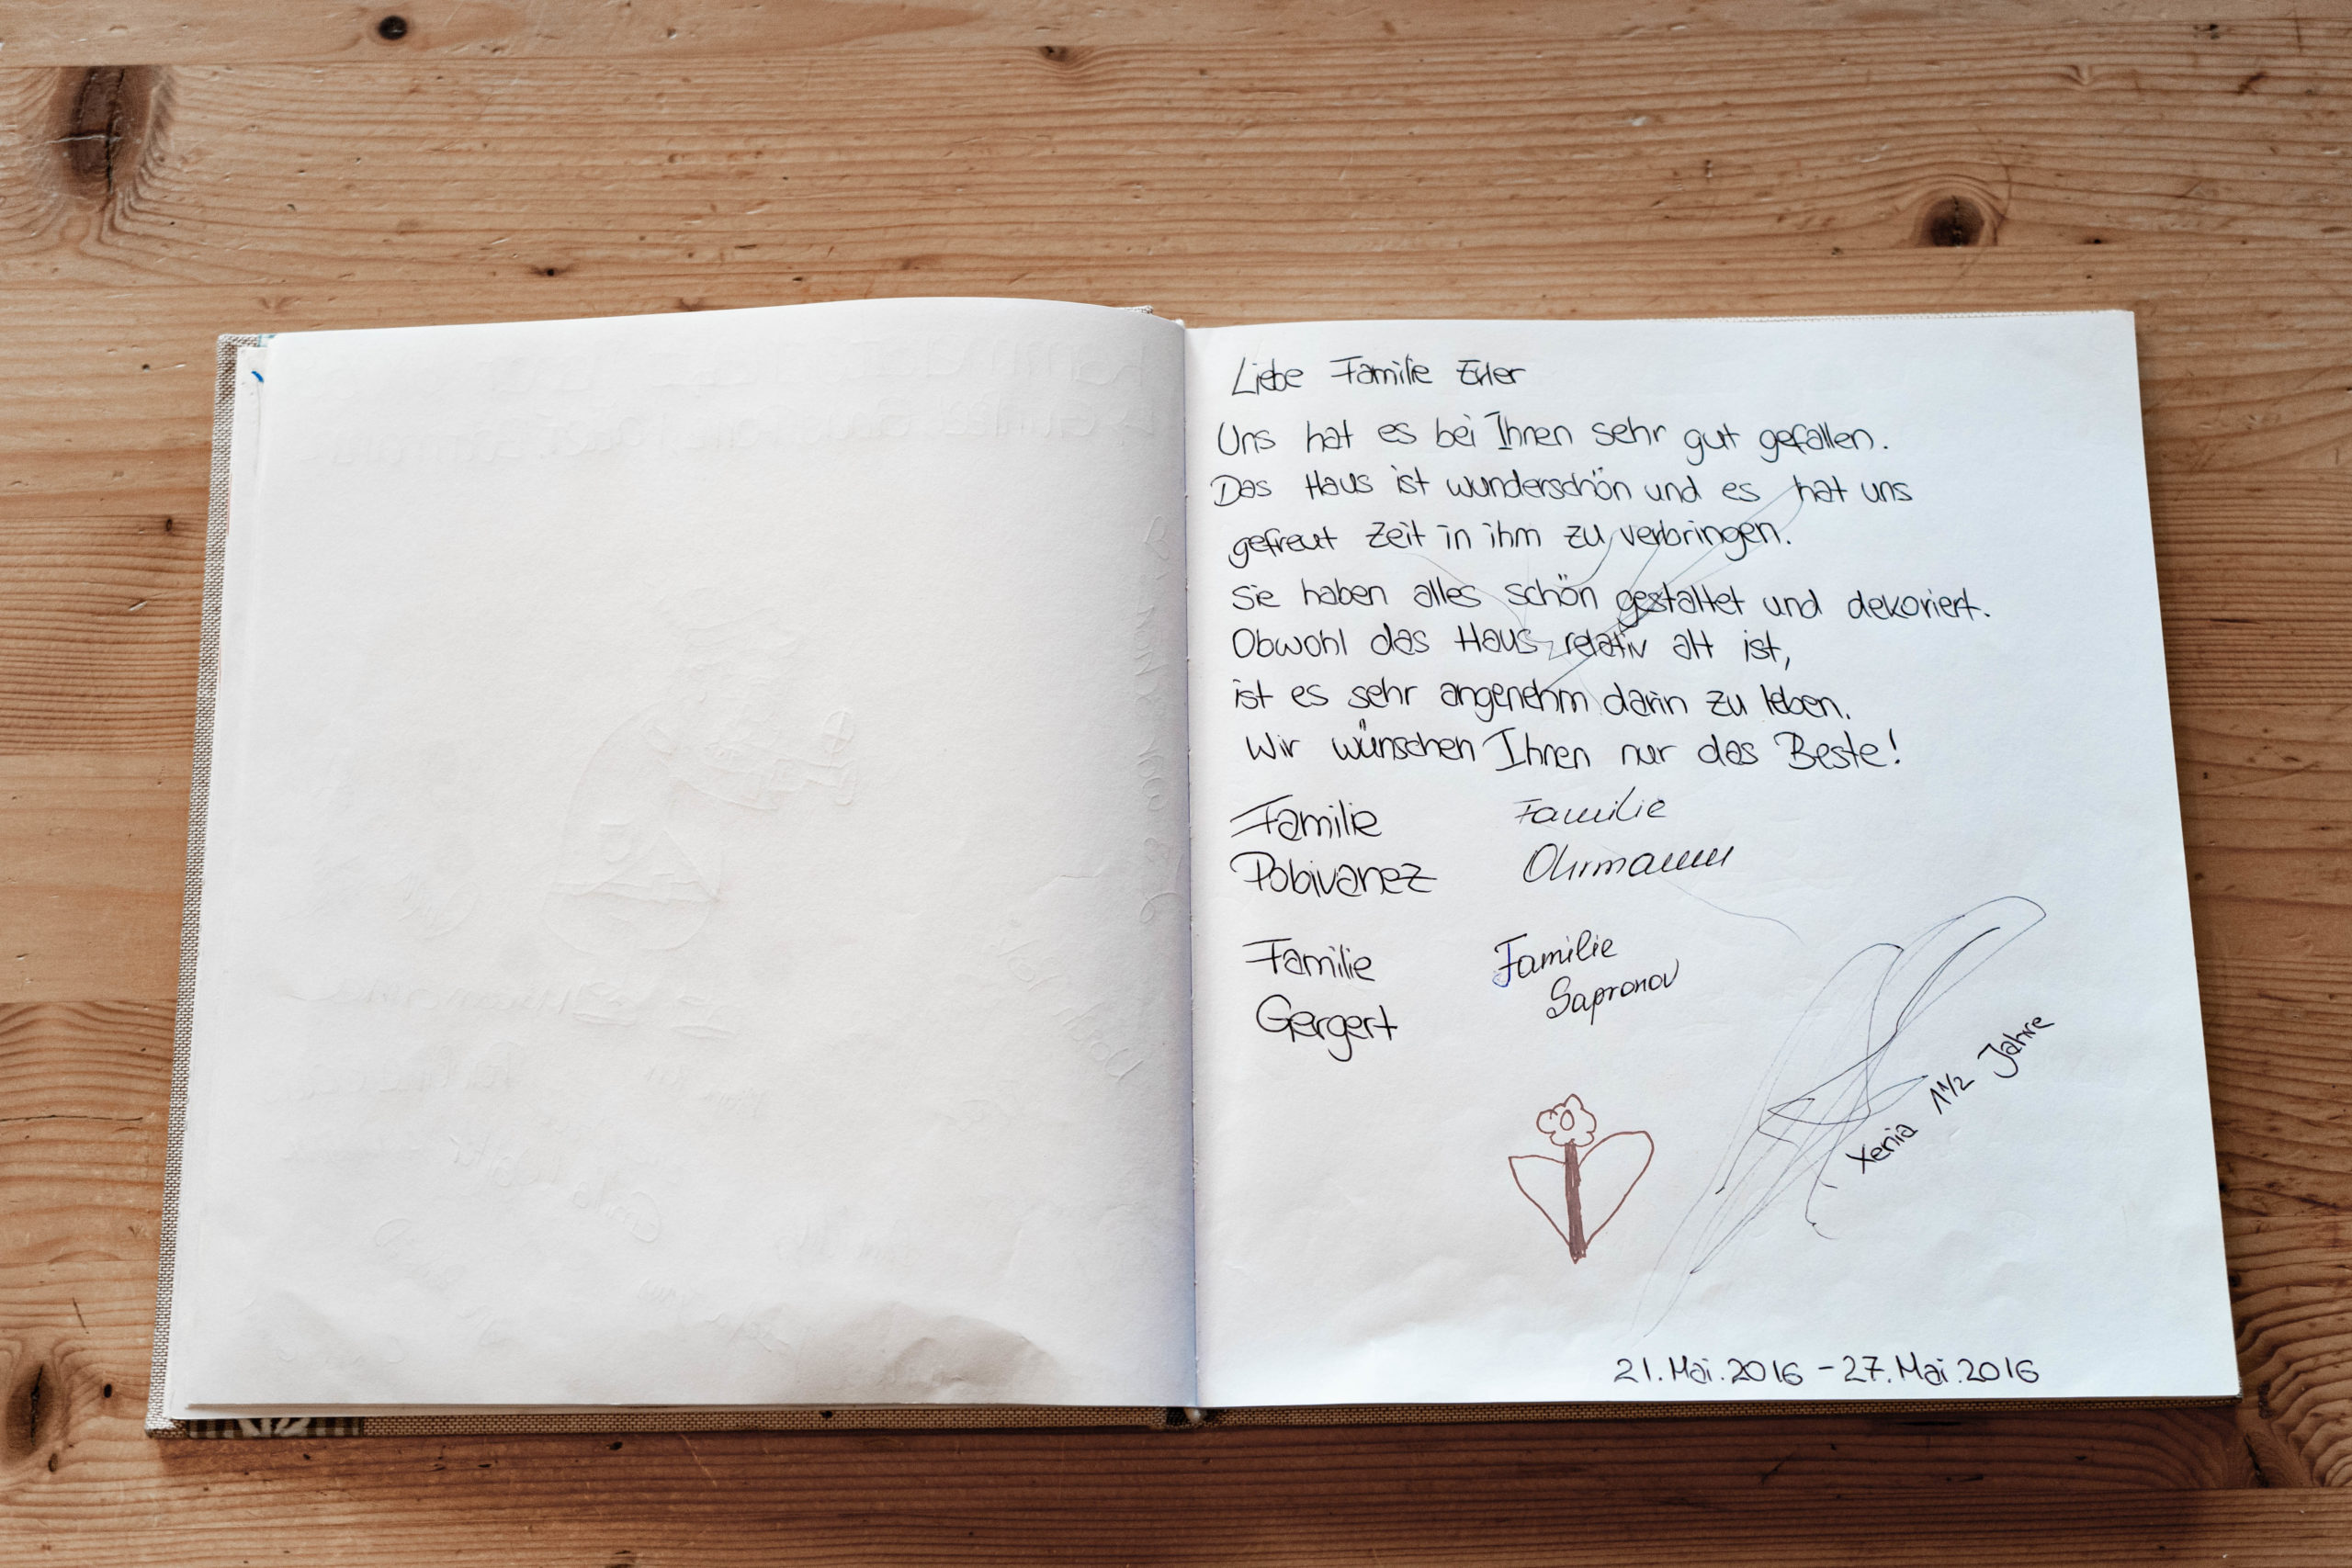 Liebe Familie Erler
Uns hat es bei Ihnen sehr gut gefallen.
Das Haus ist wunderschön und es hat uns
gefreut Zeit in ihm zu verbringen.
Sie haben alles schön gestaltet und dekoriert.
Obwohl das Haus relativ alt ist,
ist es sehr angenehm darin zu leben.
Wir wünschen Ihnen nur das Beste!
Familie
Pobivanez
Familie
Ohrmann
Familie
Gergert
Familie
Sapronov
Xenia 1 1/2 Jahre
21.Mai.2016 - 27.Mai.2016